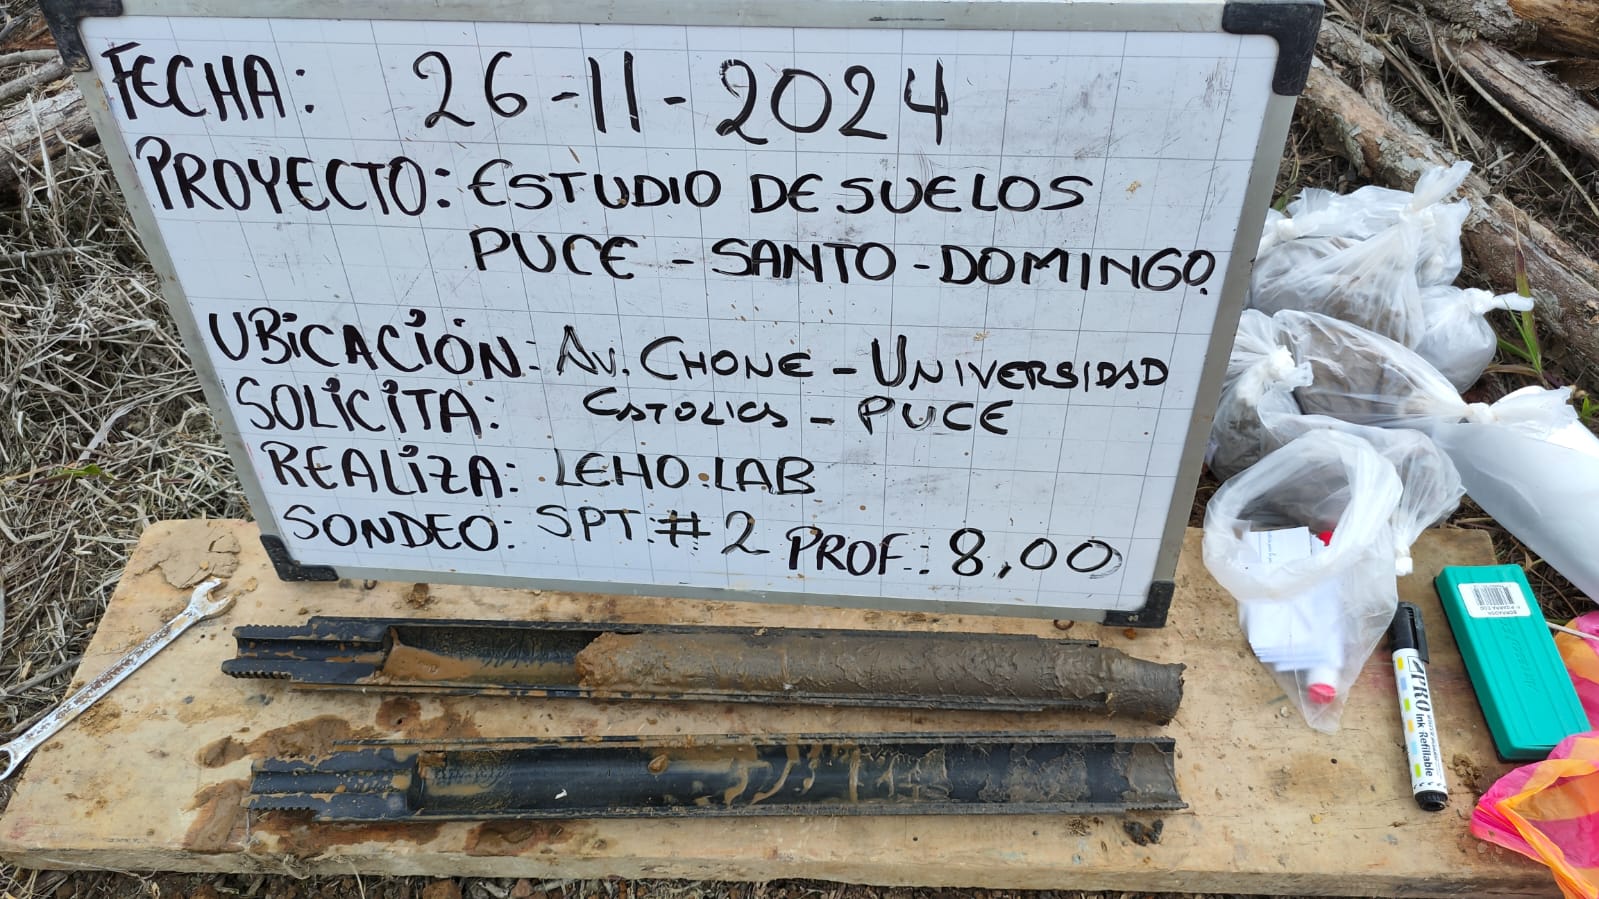 FECHA: 26-11-2024
PROYECTO: ESTUDIO DE SUELOS
PUCE - SANTO - DOMINGO.
UBICACIÓN: AV. CHONE - UNIVERSIDAD
SOLICITA: CATOLICA - PUCE
REALIZA: LEHO.LAB
SONDEO: SPT.#2 PROF.: 8,00
PRO
ink Refillable
BORRADOR